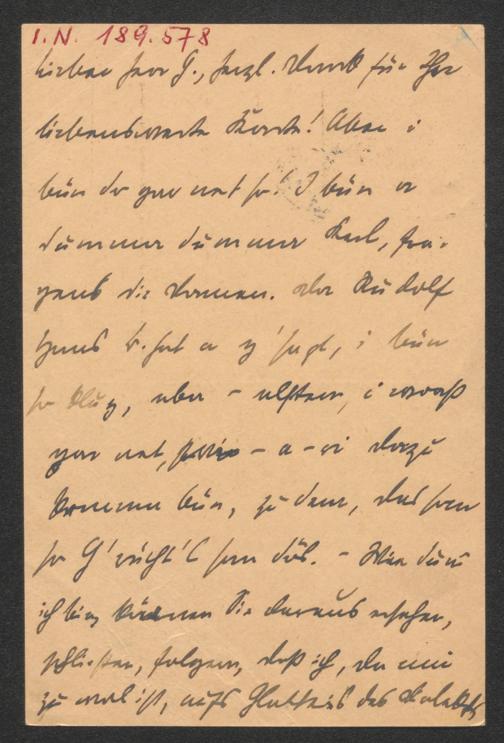 I.N. 189.578
Lieber Herr G., herzl. Dank für Ihre
liebenswerte Karte! Aber i
bin do gar net so! I bin a
dummer dummer Kerl,
die Damen. Der Rudolf
Hans B. hat a g'sagt, i bin
so klug, aber – i waaß
gar net, – a – wi dazu
kommen bin, zu dem, das
so G'       san dös. – Wie dumm
ich bin, können Sie daraus ersehen,
schließen, folgern, daß ich, da mir
zu wohl ist, aufs Glatteis des Dialekts